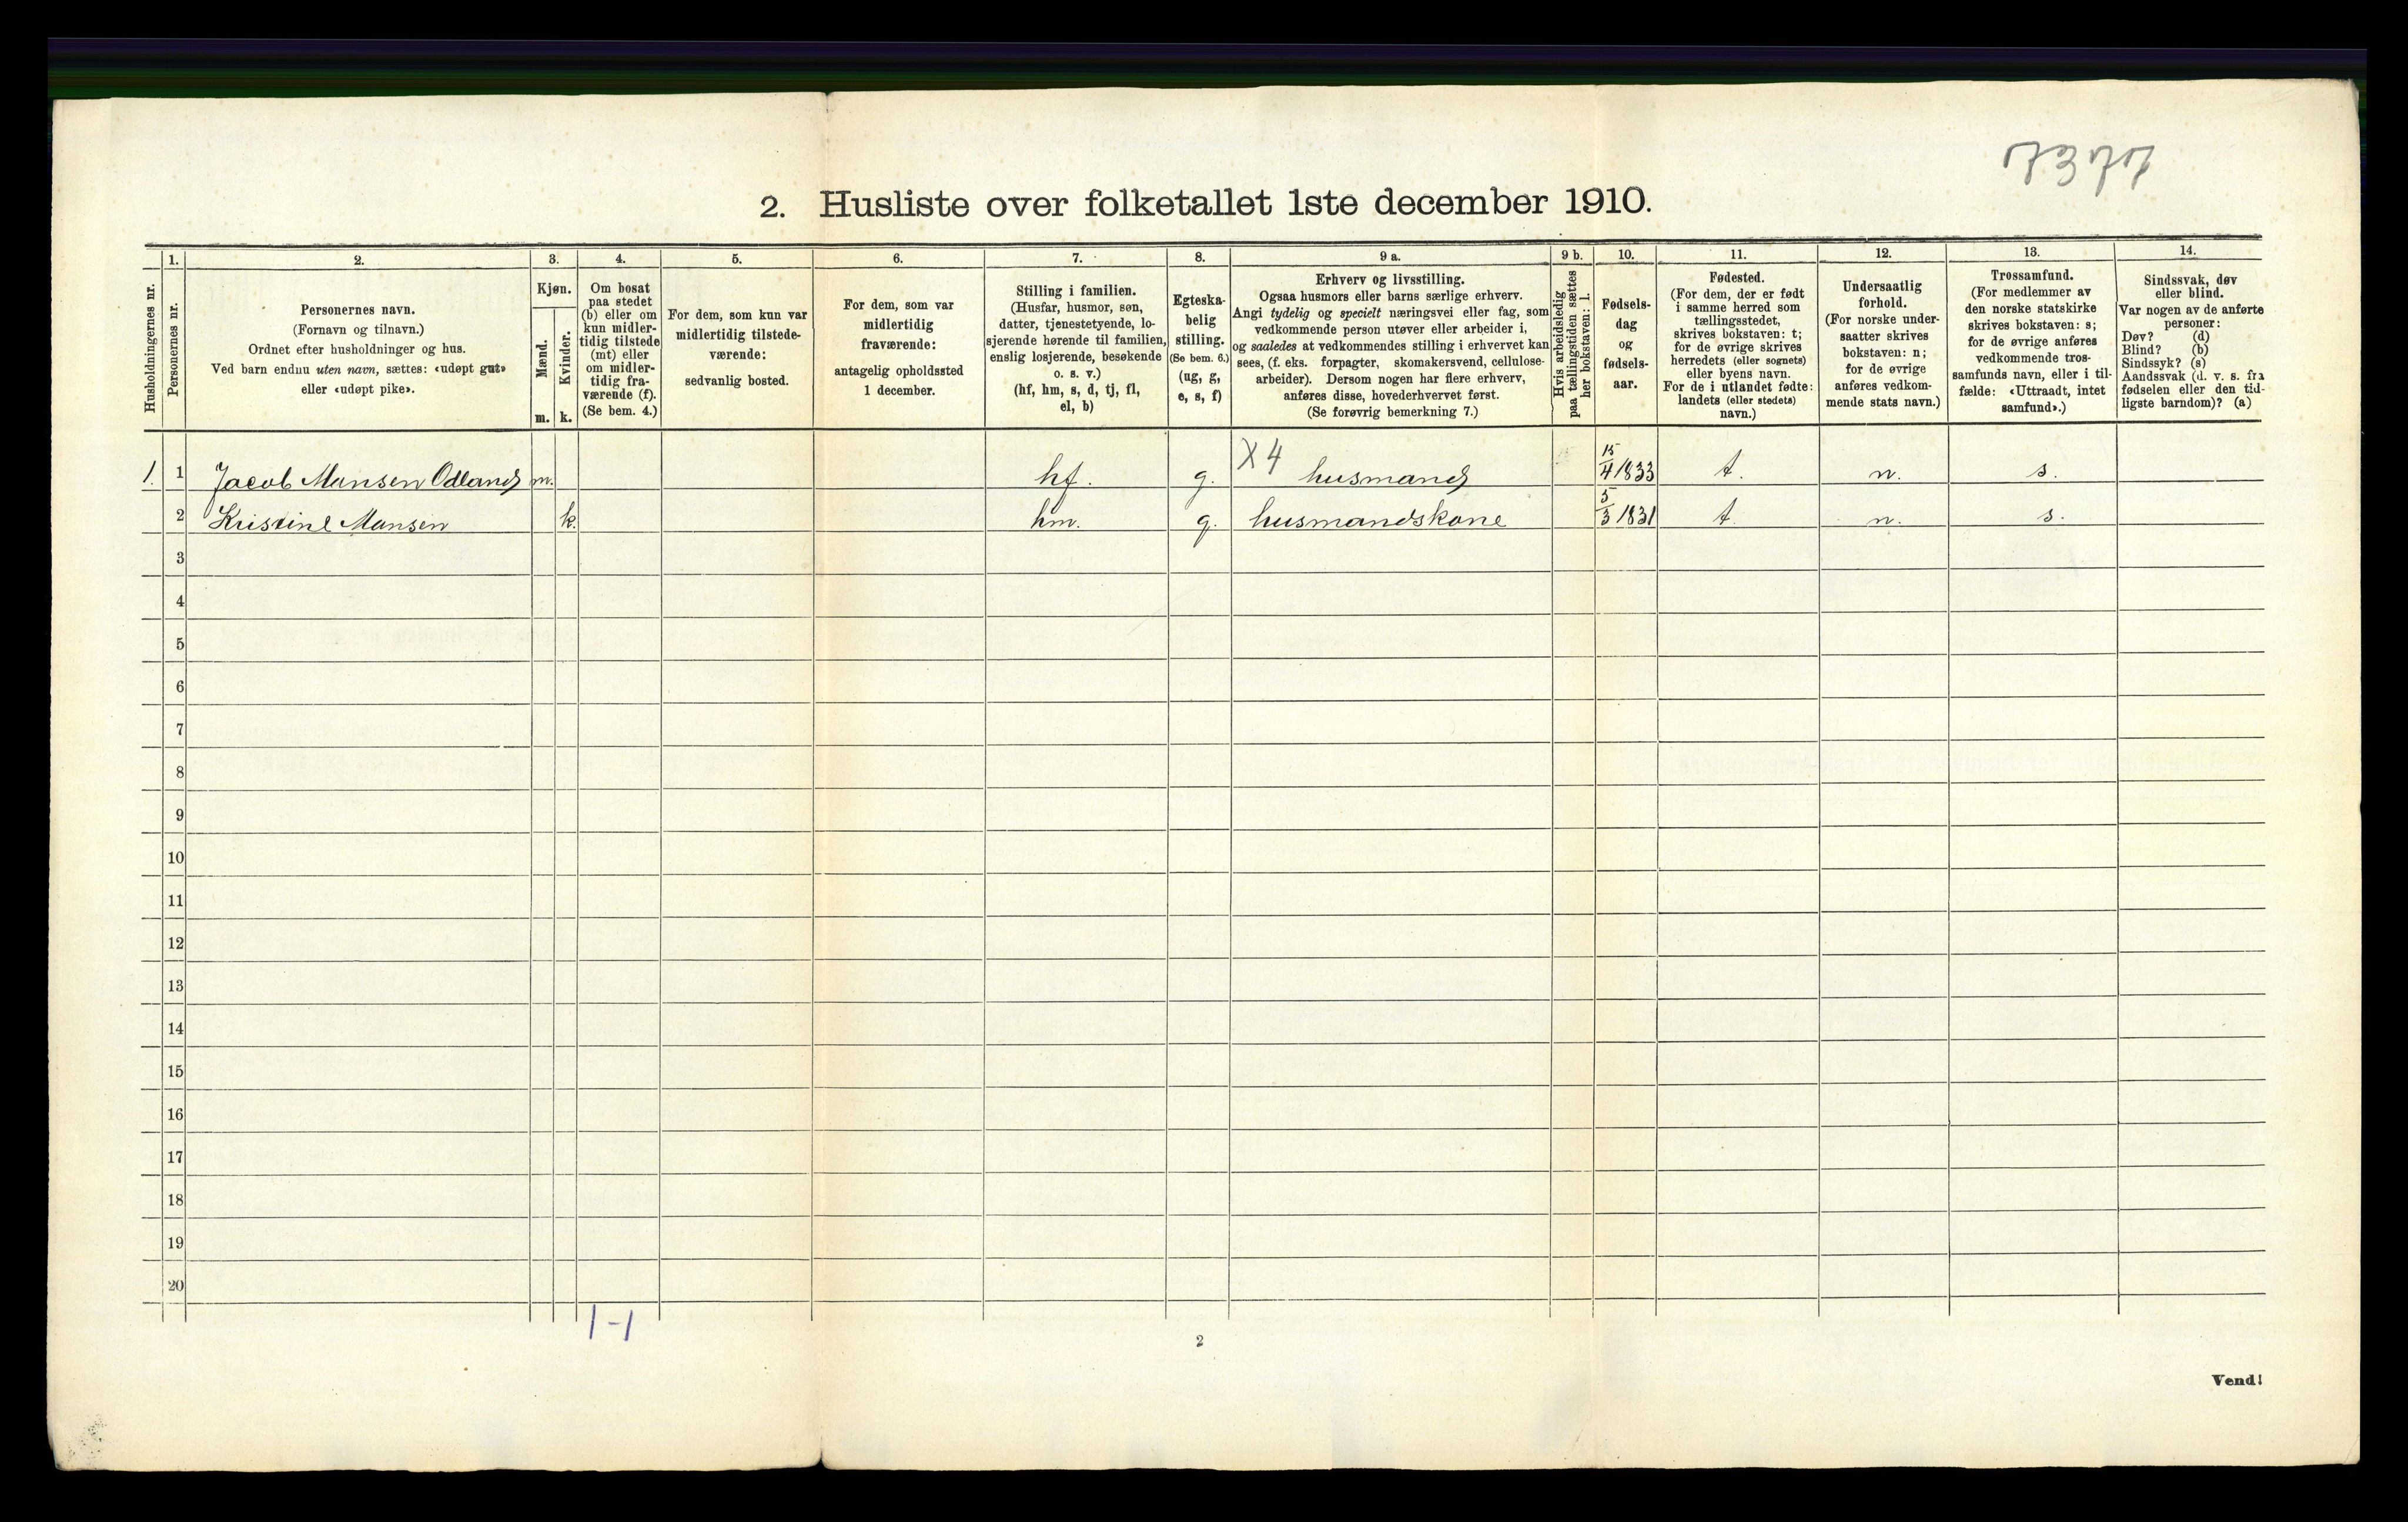 7377
2. Husliste over folketallet 1ste december 1910.
Husholdningernes nr.
1.
Personernes nr.
2.
Personernes navn.
(Fornavn og tilnavn.)
Ordnet efter husholdninger og hus.
Ved barn endnu uten navn, sættes: «udøpt gut»
eller «udøpt pike».
3.
Kjøn.
Mænd.
m.
Kvinder.
k.
4.
Om bosat
paa stedet
(b) eller om
kun midler-
tidig tilstede
(mt) eller
om midler-
tidig fra-
værende (f).
(Se bem. 4.)
5.
For dem, som kun var
midlertidig tilstede-
værende:
sedvanlig bosted.
6.
For dem, som var
midlertidig
fraværende:
antagelig opholdssted
1 december.
7.
Stilling i familien.
(Husfar, husmor, søn,
datter, tjenestetyende, lo-
sjerende hørende til familien,
enslig losjerende, besøkende
o. s. v.)
(hf, hm, s, d, tj, fl,
el, b)
8.
Egteska-
belig
stilling.
(Se bem. 6.)
(ug, g,
e, s, f)
9 a.
Erhverv og livsstilling.
Ogsaa husmors eller barns særlige erhverv.
Angi tydelig og specielt næringsvei eller fag, som
vedkommende person utøver eller arbeider i,
og saaledes at vedkommendes stilling i erhvervet kan
sees, (f. eks. forpagter, skomakersvend, cellulose-
arbeider). Dersom nogen har flere erhverv,
anføres disse, hovederhvervet først.
(Se forøvrig bemerkning 7.)
9 b.
Hvis arbeidsledig
paa tællingstiden sættes
her bokstaven: l.
10.
Fødsels-
dag
og
fødsels-
aar.
11.
Fødested.
(For dem, der er født
i samme herred som
tællingsstedet,
skrives bokstaven: t;
for de øvrige skrives
herredets (eller sognets)
eller byens navn.
For de i utlandet fødte:
landets (eller stedets)
navn.)
12.
Undersaatlig
forhold.
(For norske under-
saatter skrives
bokstaven: n;
for de øvrige
anføres vedkom-
mende stats navn.)
13.
Trossamfund.
(For medlemmer av
den norske statskirke
skrives bokstaven: s;
for de øvrige anføres
vedkommende tros-
samfunds navn, eller i til-
fælde: «Uttraadt, intet
samfund».)
14.
Sindssvak, døv
eller blind.
Var nogen av de anførte
personer:
Døv? (d)
Blind? (b)
Sindssyk? (s)
Aandssvak (d. v. s. fra
fødselen eller den tid-
ligste barndom)? (a)
1. 1 Jacob Monsen Odland m. hf. g. X4 husmand 15/4 1833 t. n. s.
2 Kristine Monsen k. hm. g. husmandskone 5/3 1831 t. n. s.
3
4
5
6
7
8
9
10
11
12
13
14
15
16
17
18
19
20
1-1
2
Vend!